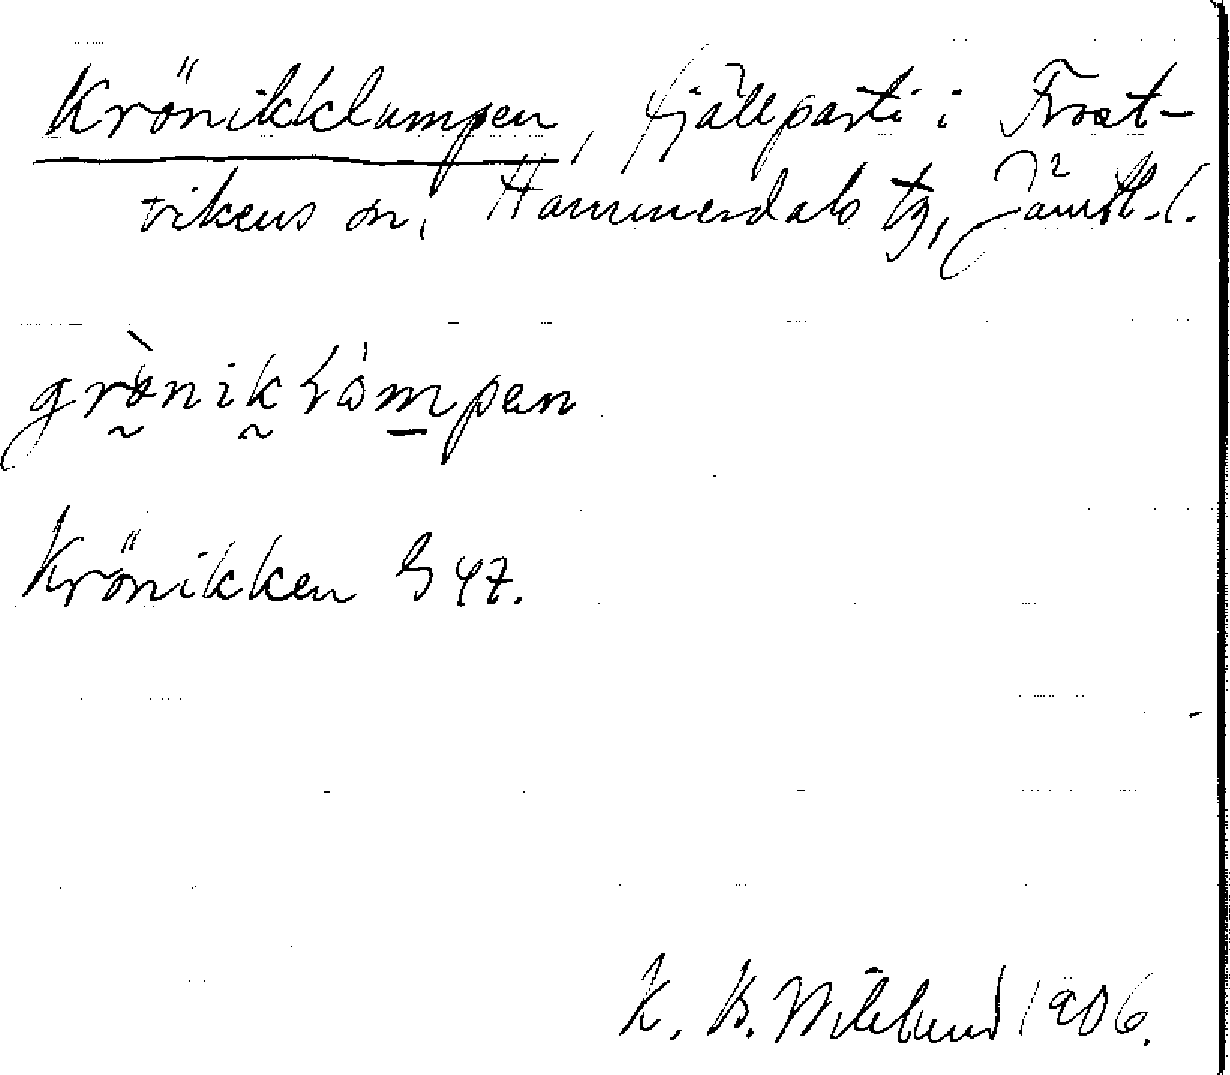 Krönikklumpen, fjällparti i Frost-
vikens sn, Hammerdals tg, Jämtl. l.
grònik lòmpen
Krönikken G47.
K. B. Wiklund 1906.